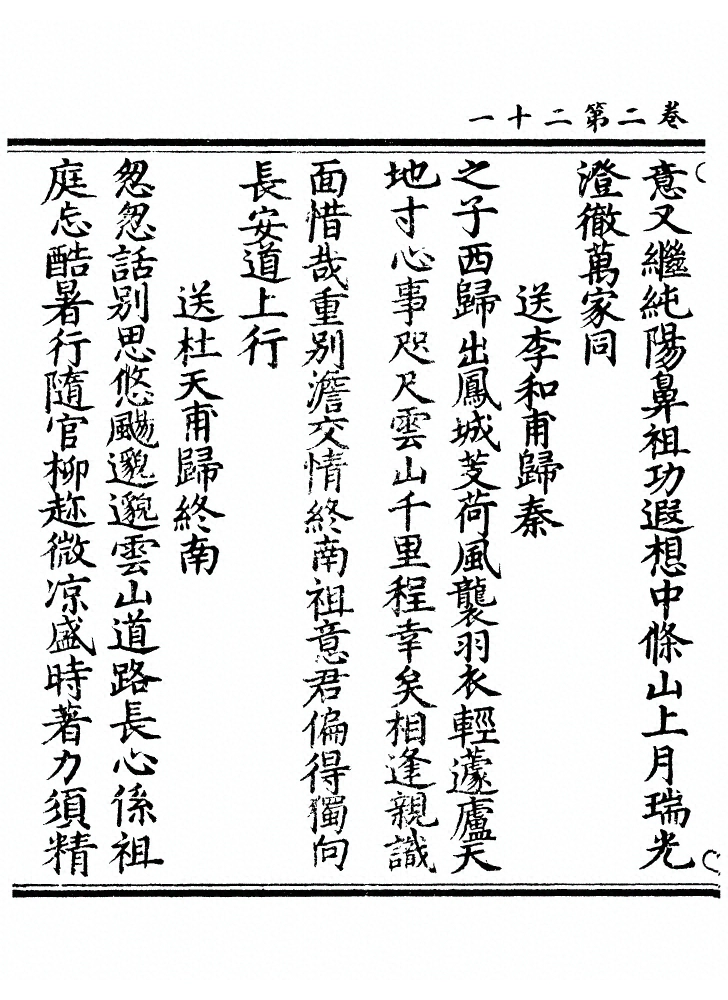 卷二第二十一
意又繼純陽鼻祖功遐想中條山上月瑞光
澄徹萬家同
送李和甫歸秦
之子西歸出鳳城芰荷風襲羽衣輕蘧廬天
地寸心事咫尺雲山千里程幸矣相逢親識
面惜哉重別澹交情終南祖意君偏得獨向
長安道上行
送杜天甫歸終南
怱怱話別思悠颺邈邈雲山道路長心係祖
庭忘酷暑行隨官柳趂微凉盛時著力須精